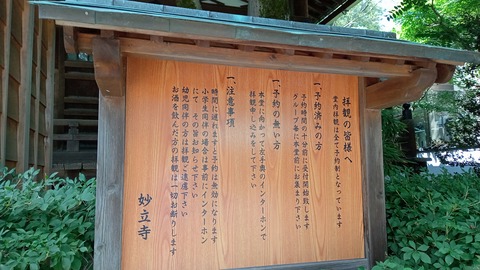 拝観の皆様へ
堂内拝観は全て予約制となっています
一、予約済みの方
予約時間の十分前に受付開始致します
グループ毎に本堂前にお集まり下さい
一、予約の無い方
本堂に向かって左手奥のインターホンで
拝観申し込みをして下さい
一、注意事項
時間に遅れますと予約は無効になります
小学生同伴の場合は事前にインターホン
にて、その旨お知らせ下さい
幼児同伴の方は拝観ご遠慮下さい
お酒を飲んだ方の拝観は一切お断りします
妙立寺